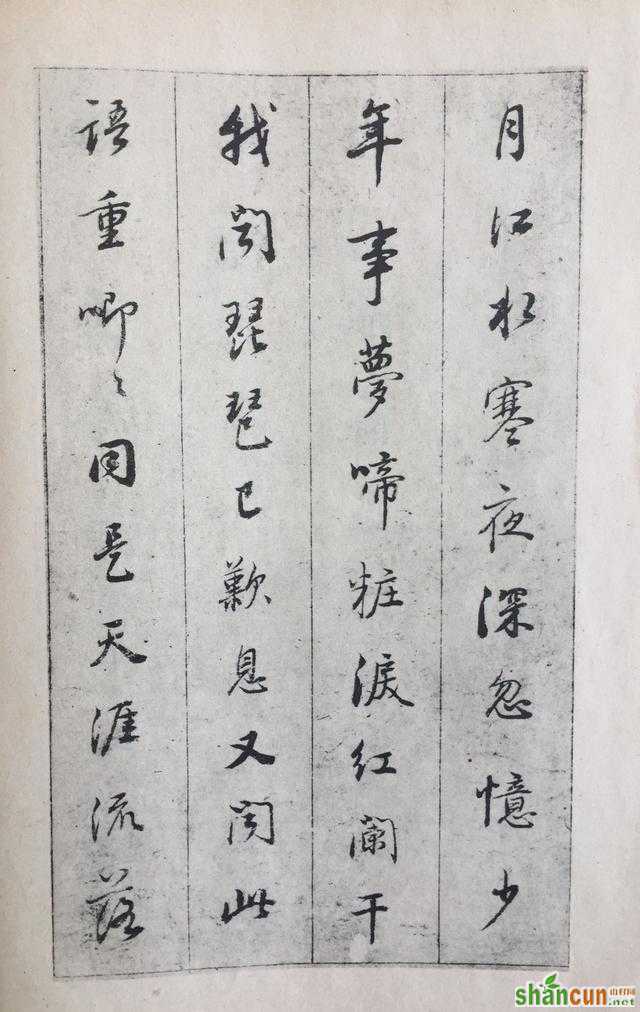 月江水寒夜深忽憶少
年事夢啼粧淚紅闌干
我聞琵琶已歎息又聞此
語重唧〻同是天涯流落
shancun 山村网
.net